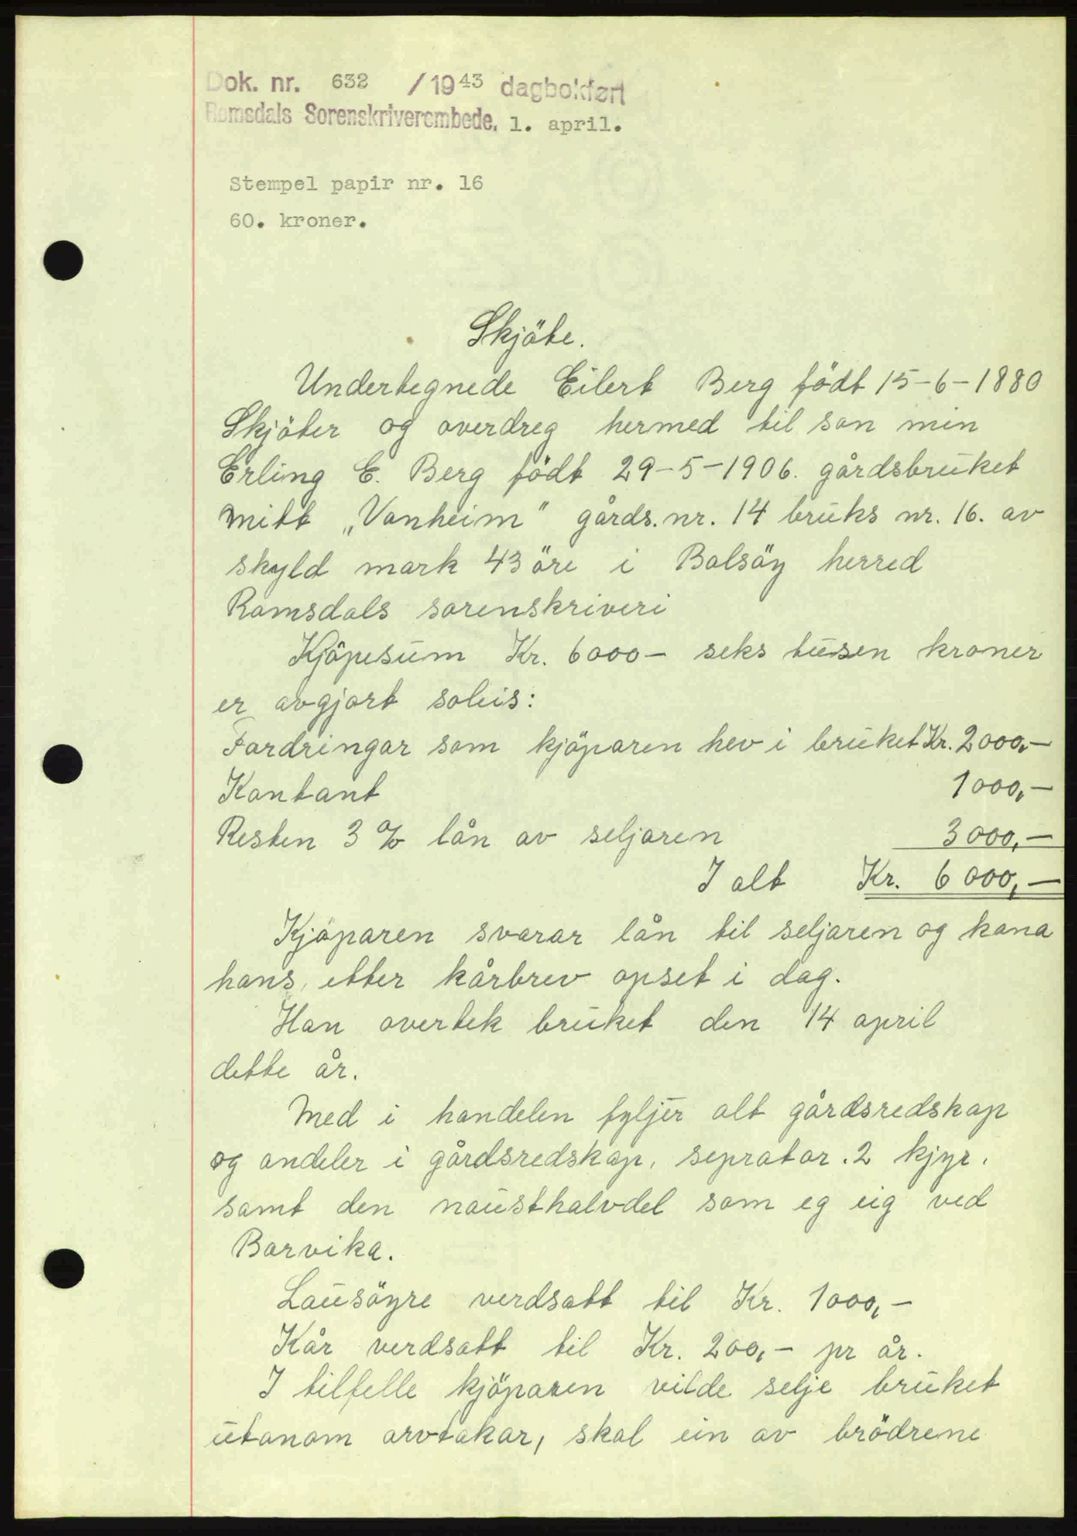 Dok. nr. 632 / 1943 dagbokført
Romsdals Sorenskriverembede, 1. april.
Stempel papir nr. 16
60. kroner.
Skjöte.
Undertegnede Eilert Berg födt 15-6-1880
Skjöter og overdreg hermed til son min
Erling E. Berg födt 29-5-1906. gårdsbruket
mitt „Vonheim" gårds. nr. 14 bruks nr. 16. av
skyld mark 43 öre i Bolsöy herred
Romsdals sorenskriveri
Kjöpesum Kr. 6000- seks tusen kroner
er avgjort soleis:
Fordringar som kjöparen hev i bruket Kr. 2000,-
Kontant 1000,-
Resten 3 % lån av seljaren 3000,-
I alt Kr. 6000,-
Kjöparen svarar lån til seljaren og kona
hans, etter kårbrev opset i dag.
Han overtek bruket den 14 april
dette år.
Med i handelen fyljer alt gårdsredskap
og andeler i gårdsredskap, seprator. 2 kjyr.
samt den nausthalvdel som eg eig ved
Barvika.
Lausöyre verdsatt til Kr. 1000,-
Kår verdsatt til Kr. 200,- pr år.
I tilfelle kjöparen vilde selje bruket
utanom arvtakar, skal ein av brödrene